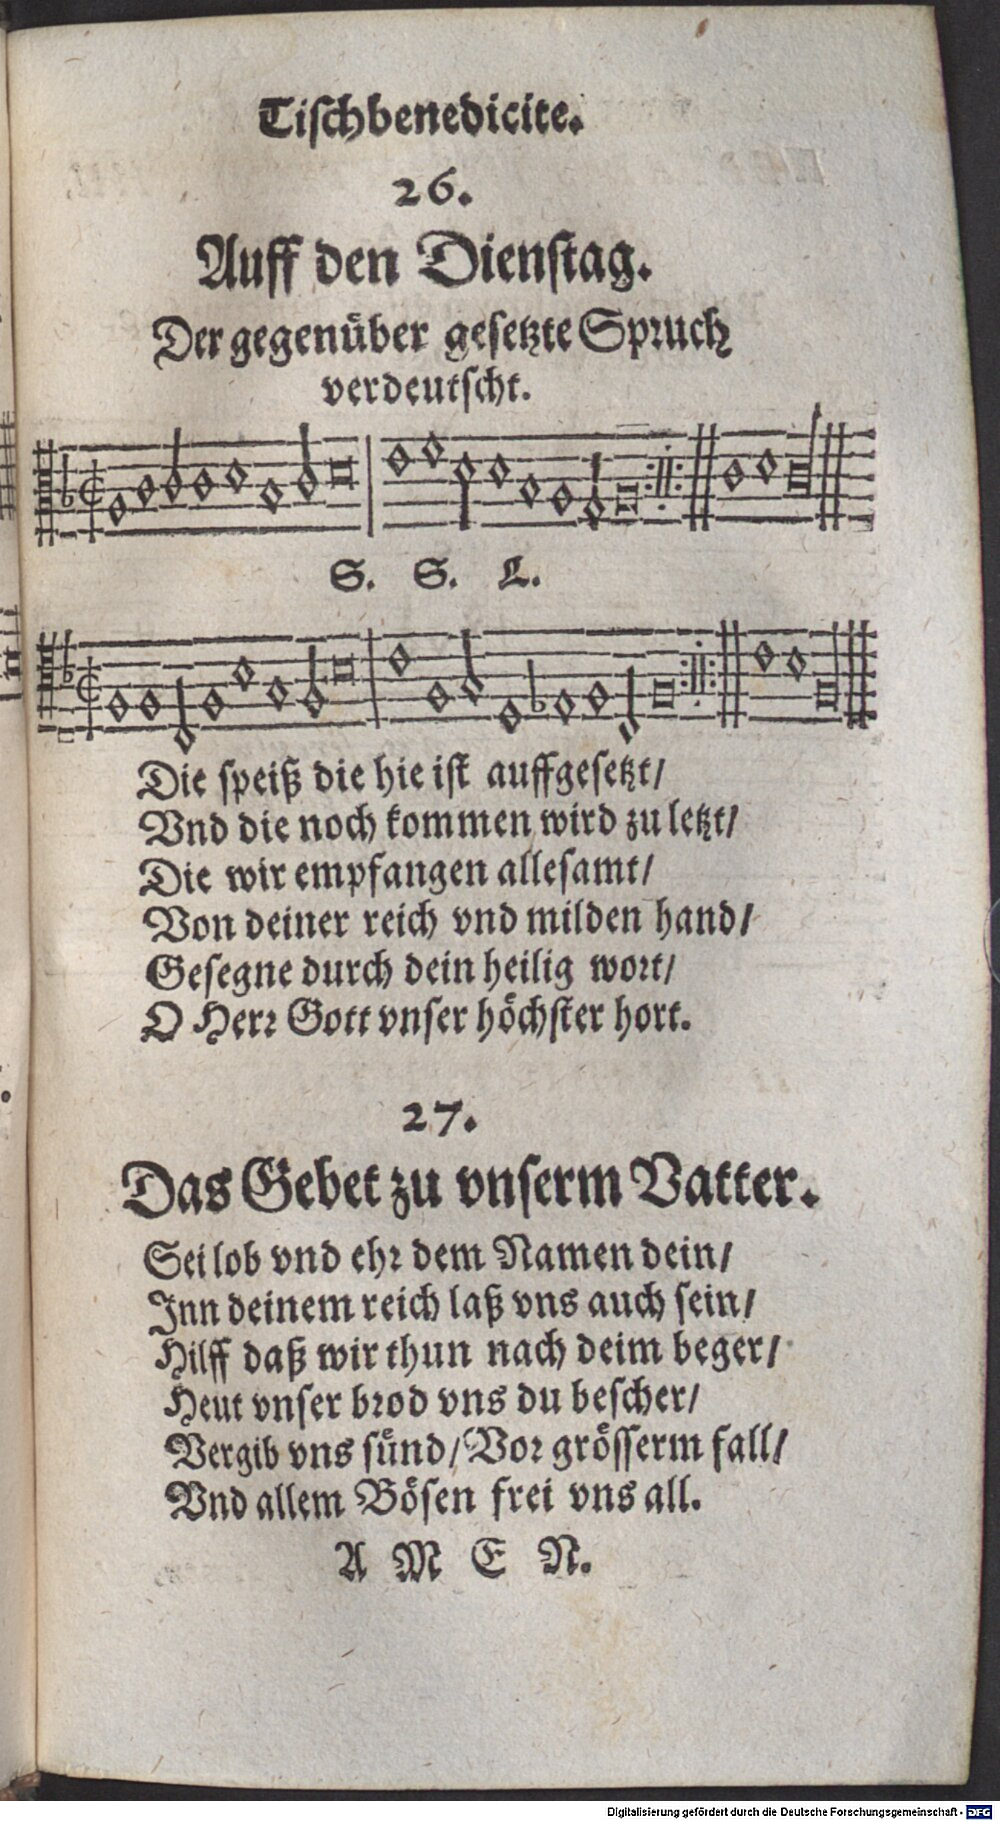 Tiſchbenedicite.
26.
Auff den Dienſtag.
Der gegenüber geſetzte Spruch
verdeutſcht.
S. S. L.
Die ſpeiß die hie iſt auffgeſetzt/
Vnd die noch kommen wird zu letzt/
Die wir empfangen alleſamt/
Von deiner reich vnd milden hand/
Geſegne durch dein heilig wort/
O Herr Gott vnſer höchſter hort.
27.
Das Gebet zu vnſerm Vatter.
Sei lob vnd ehr dem Namen dein/
Inn deinem reich laß vns auch ſein/
Hilff daß wir thun nach deim beger/
Heut vnſer brod vns du beſcher/
Vergib vns ſünd/ Vor gröſſerm fall/
Vnd allem Böſen frei vns all.
A M E N.
Digitalisierung gefördert durch die Deutsche Forschungsgemeinschaft - DFG